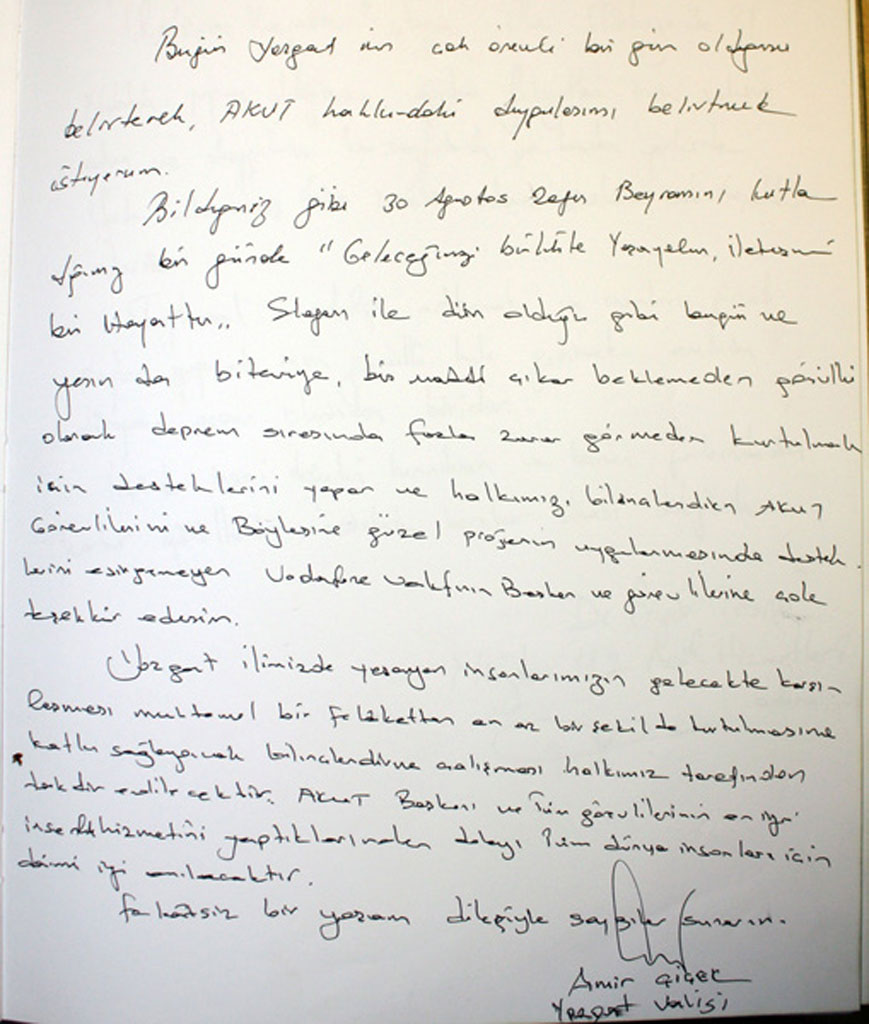 Bugün Yozgat için çok önemli bir gün olduğunu
belirterek, AKUT hakkındaki duygularımı belirtmek
istiyorum.
Bildiğiniz gibi 30 Ağustos Zafer Bayramını kutla
dığımız bir günde "Geleceğimizi birlikte Yaşayalım,
bir Hayattır,, Slogan ile dün olduğu gibi bugün ve
yarın da biteviye, bir maddi çıkar beklemeden gönüllü
olarak deprem sırasında fazla zarar görmeden kurtulmak
için desteklerini yapan ve halkımızı bilinçlendiren AKUT
Görevlilerini ve Böylesine güzel projenin uygulanmasında destek
lerini esirgemeyen Vodafone vakfının Başkan ve görevlilerine çok
teşekkür ederim.
Yozgat ilimizde yaşayan insanlarımızın gelecekte karşı
laşması muhtemel bir felaketten en az bir şekilde kurtulmasına
katkı sağlayacak bilinçlendirme çalışması halkımız tarafından
takdir edilecektir. AKUT Başkanı ve Tüm görevlilerinin en iyi
yaptıklarından dolayı Tüm dünya insanları için
daima iyi anılacaktır.
bir yaşam dileğiyle saygılar sunarım.
Amir Çiçek
Yozgat Valisi